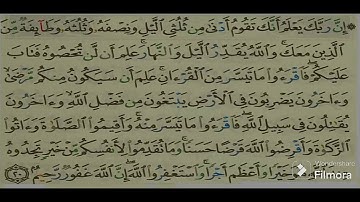 إِنَّ رَبَّكَ يَعْلَمُ أَنَّكَ تَقُومُ أَدْنَىٰ مِن ثُلُثَيِ ٱلَّيْلِ وَنِصْفَهُۥ وَثُلُثَهُۥ وَطَآئِفَةٌ مِّنَ
ٱلَّذِينَ مَعَكَ ۚ وَٱللَّهُ يُقَدِّرُ ٱلَّيْلَ وَٱلنَّهَارَ ۚ عَلِمَ أَن لَّن تُحْصُوهُ فَتَابَ
عَلَيْكُمْ ۖ فَٱقْرَءُوا۟ مَا تَيَسَّرَ مِنَ ٱلْقُرْءَانِ ۚ عَلِمَ أَن سَيَكُونُ مِنكُم مَّرْضَىٰ ۙ
وَءَاخَرُونَ يَضْرِبُونَ فِى ٱلْأَرْضِ يَبْتَغُونَ مِن فَضْلِ ٱللَّهِ ۙ وَءَاخَرُونَ
يُقَٰتِلُونَ فِى سَبِيلِ ٱللَّهِ ۖ فَٱقْرَءُوا۟ مَا تَيَسَّرَ مِنْهُ ۚ وَأَقِيمُوا۟ ٱلصَّلَوٰةَ وَءَاتُوا۟
ٱلزَّكَوٰةَ وَأَقْرِضُوا۟ ٱللَّهَ قَرْضًا حَسَنًا ۚ وَمَا تُقَدِّمُوا۟ لِأَنفُسِكُم مِّنْ خَيْرٍ تَجِدُوهُ
خَيْرًا وَأَعْظَمَ أَجْرًا ۚ وَٱسْتَغْفِرُوا۟ ٱللَّهَ ۖ إِنَّ ٱللَّهَ غَفُورٌ رَّحِيمٌۢ ٢٠
Wondershare
Filmora